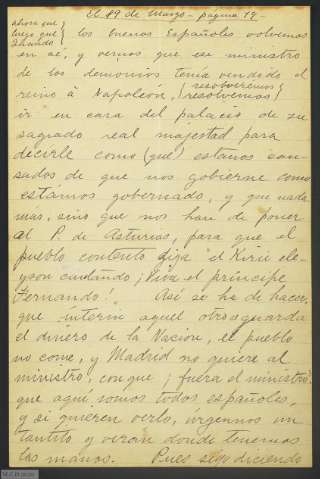 El 19 de Marzo - página 19 -
ahora que
luego que
cuando
los buenos Españoles volvemos
en sí, y vemos que ese ministro
de los demonios tenía vendido el
reino a Napoleón, (resolveremos
(resolvemos)
ir en casa del palacio de su
sagrada real majestad para
decirle como (que) estamos can-
sados de que nos gobierne como
estámos gobernado, y que nada
más, sino que nos han de poner
al P. de Asturias, para que el
pueblo contento diga "el Kirie ele-
yson cantando, ¡Viva el príncipe
Fernando!" Así se ha de hacer,
que ínterin aquel otro se guarda
el dinero de la Nación, el pueblo
no come, y Madrid no quiere al
ministro, conque ¡fuera el ministro!
que aquí somos todos españoles,
y si quieren verlo, úrgennos un
tantito y verán donde tenemos
las manos. Pues sigo diciendo